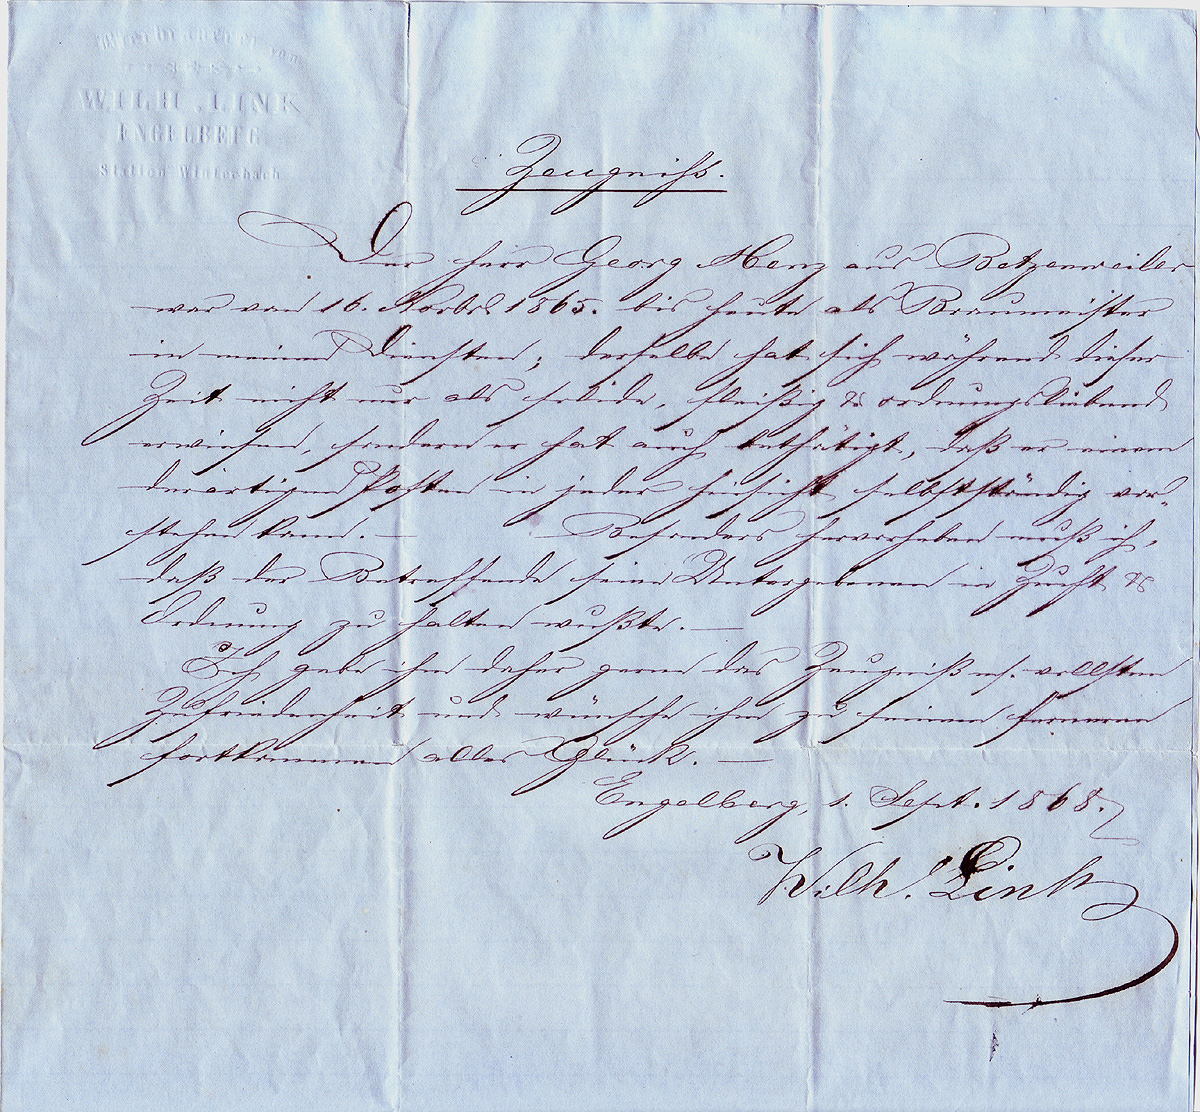 WILH. LINK
ENGELBERG
Station Winterbach
Zeugniss.
Der Herr Georg Menz aus Betzenweiler
war vom 16. Novbr 1865. bis heute als Braumeister
in meinen Diensten; derselbe hat sich während dieser
Zeit nicht nur als solide, fleißig & ordnungsliebend
erwiesen, sondern er hat auch bethätigt, daß er einem
derartigen Posten in jeder Hinsicht selbstständig vor-
stehen kann. — Besonders hervorheben muß ich,
daß der Betreffende seine Untergebenen in Zucht &
Ordnung zu halten wußte. —
Ich gebe ihm daher gerne das Zeugniß m. vollsten
Zufriedenheit und wünsche ihm zu seinem ferneren
Fortkommen alles Glück. —
Engelberg, 1. Sept. 1868.
Wilh. Link